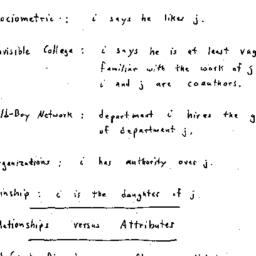 ociometric : i says he likes j.
visible College : i says he is at least vag
familiar with the work of j
i and j are coauthors.
ld-Boy Network : department i hires the g
of department j.
rganizations : i has authority over j.
inship : i is the daughter of j
lationships versus Attributes